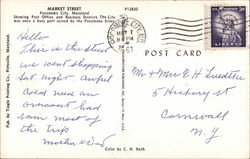 MARKET STREET
Pocomoke City, Maryland
Showing Post Office and Business District. The City
was once a busy port served by the Pocomoke River.
P12830
Hello
This is the street
we went shopping
Sat. night. Awful
Cold near an
overcoat had
rain most of
the trip
Mother & Dad
MAY 7
8 PM
1961
LIBERTY
POST CARD
Mr & Mrs E H Luedtke
5 Hickory St
Cornwall
N. Y
Pub. by Tingle Printing Co., Pittsville, Maryland
Color by C. H. Ruth